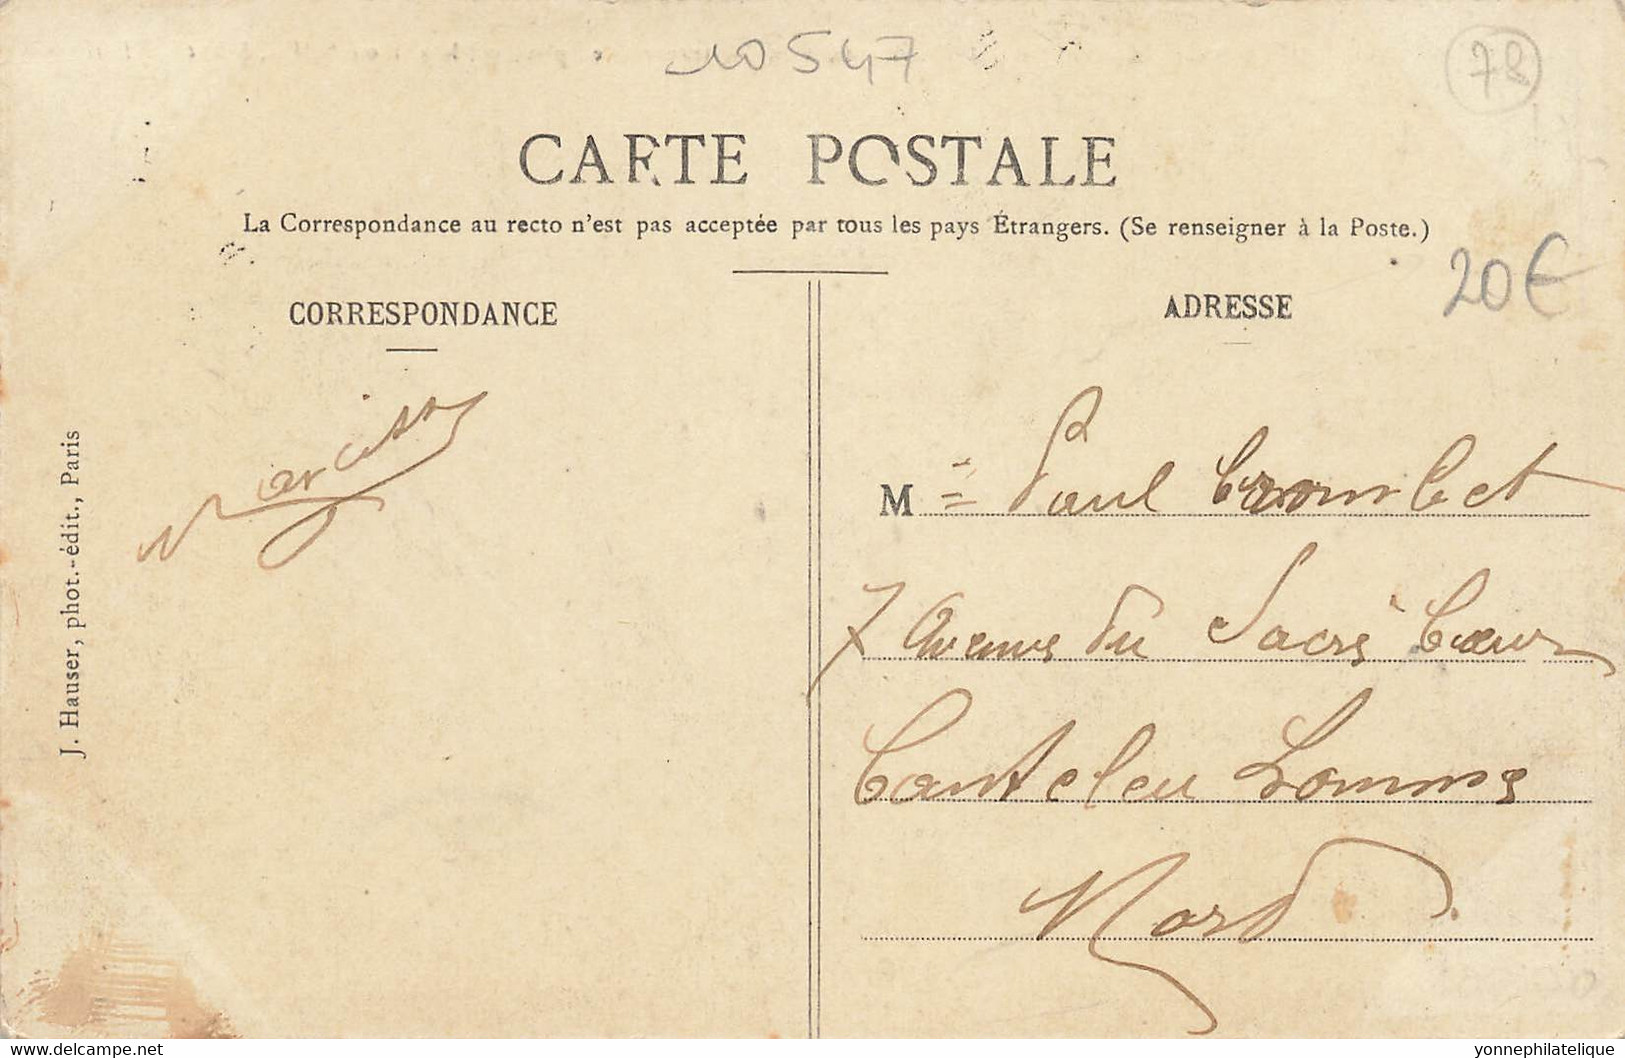 10547
78
CARTE POSTALE
La Correspondance au recto n'est pas acceptée par tous les pays Étrangers. (Se renseigner à la Poste.)
20€
CORRESPONDANCE
ADRESSE
J. Hauser, phot.-édit., Paris
Narcisse
M Paul Crombet
7 Avenue du Sacré Cœur
Canteleu Lomme
Nord
delcampe.net
yonnephilatelique